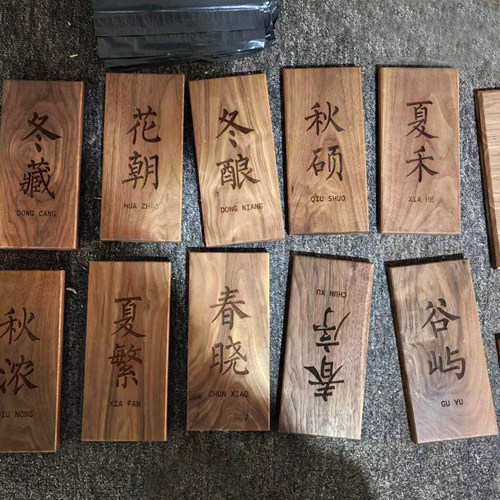 冬藏
DONG CANG
花朝
HUA ZHAO
冬酿
DONG NIANG
秋硕
QIU SHUO
夏禾
XIA HE
秋浓
IU NONG
夏繁
XIA FAN
春晓
CHUN XIAO
春序
CHUN XU
谷屿
GU YU